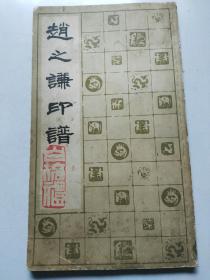 趙之謙印譜